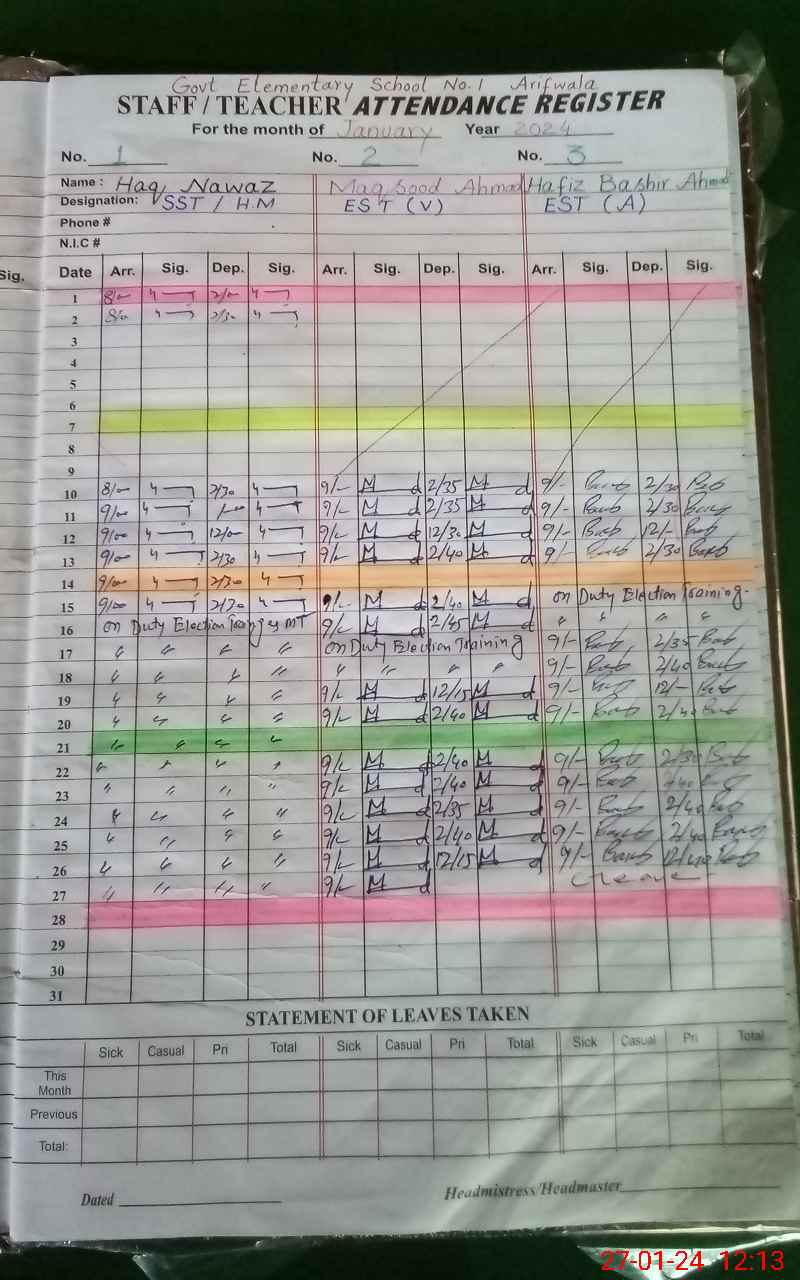 Govt Elementary School No.1 Arifwala
STAFF / TEACHER ATTENDANCE REGISTER
For the month of January Year 2024
No. 1 No. 2 No. 3
Name : Haq Nawaz Maqsood Ahmad Hafiz Bashir Ahmad
Designation: SST / H.M EST (V) EST (A)
Phone #
N.I.C #
Sig. Date Arr. Sig. Dep. Sig. Arr. Sig. Dep. Sig. Arr. Sig. Dep. Sig.
1 8/00 2/00
2 8/00 2/30
3
4
5
6
7
8
9
10 8/00 2/30 9/- 2/35 9/- 2/30
11 9/00 9/- 2/35 9/- 2/30
12 9/00 12/00 9/- 12/30 9/- 12/-
13 9/00 2/30 9/- 2/40 9/- 2/30
14 9/00 2/30
15 9/00 2/30 9/- 2/40 on Duty Election Training.
16 on Duty Election MT 9/- 2/45 " " " "
17 " " " " on Duty Election Training 9/- 2/35
18 " " " " " " " " 9/- 2/40
19 " " " " 9/- 12/15 9/- 12/-
20 " " " " 9/- 2/40 9/- 2/40
21 " " " "
22 " " " " 9/- 2/40 9/- 2/30
23 " " " " 9/- 2/40 9/-
24 " " " " 9/- 2/35 9/- 2/40
25 " " " " 9/- 2/40 9/- 2/40
26 " " " " 9/- 12/15 9/-
27 " " " " 9/- Leave
28
29
30
31
STATEMENT OF LEAVES TAKEN
Sick Casual Pri Total Sick Casual Pri Total Sick Casual Pri Total
This Month
Previous
Total:
Dated Headmistress/Headmaster
27-01-24 12:13